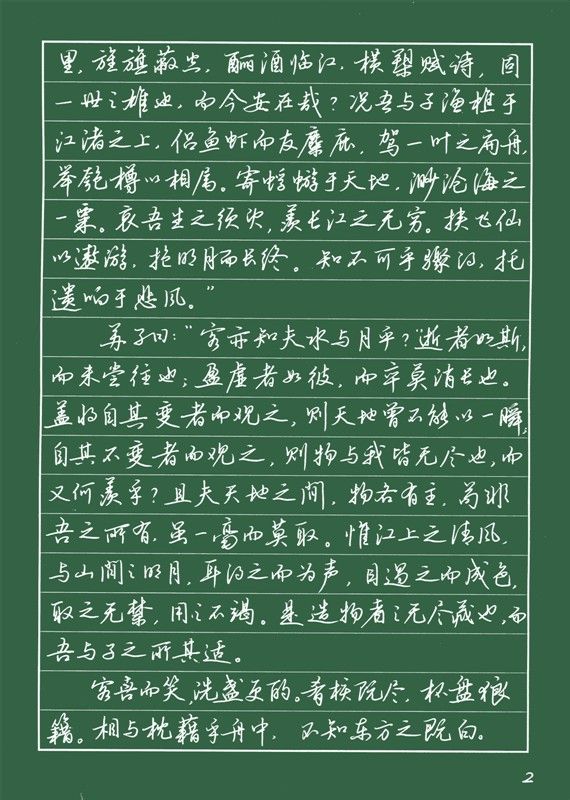 里，旌旗蔽空，酾酒临江，横槊赋诗，固
一世之雄也，而今安在哉？况吾与子渔樵于
江渚之上，侣鱼虾而友麋鹿，驾一叶之扁舟，
举匏樽以相属。寄蜉蝣于天地，渺沧海之
一粟。哀吾生之须臾，羡长江之无穷。挟飞仙
以遨游，抱明月而长终。知不可乎骤得，托
遗响于悲风。”
苏子曰：“客亦知夫水与月乎？逝者如斯，
而未尝往也；盈虚者如彼，而卒莫消长也。
盖将自其变者而观之，则天地曾不能以一瞬；
自其不变者而观之，则物与我皆无尽也，而
又何羡乎？且夫天地之间，物各有主，苟非
吾之所有，虽一毫而莫取。惟江上之清风，
与山间之明月，耳得之而为声，目遇之而成色，
取之无禁，用之不竭。是造物者之无尽藏也，而
吾与子之所共适。
客喜而笑，洗盏更酌。肴核既尽，杯盘狼
籍。相与枕藉乎舟中，不知东方之既白。
2